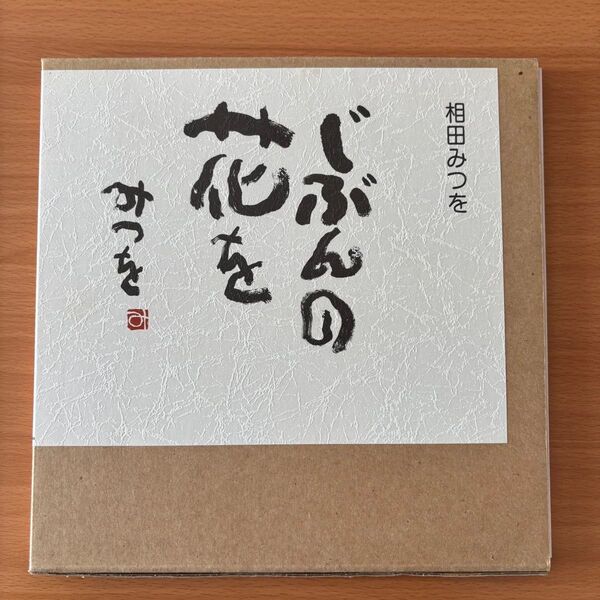 相田みつを
じぶんの
花を
みつを